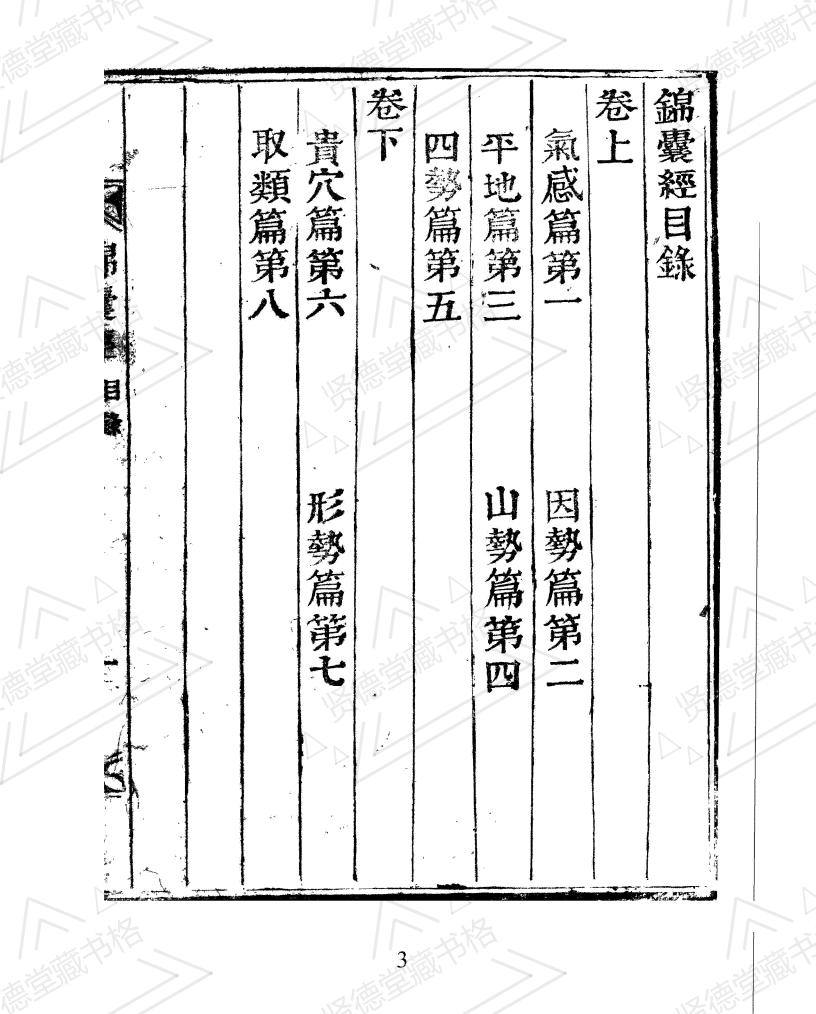 錦囊經目錄
卷上
氣感篇第一 因勢篇第二
平地篇第三 山勢篇第四
四勢篇第五
卷下
貴穴篇第六 形勢篇第七
取類篇第八
錦囊經 目錄
一
3
贤德堂藏书格